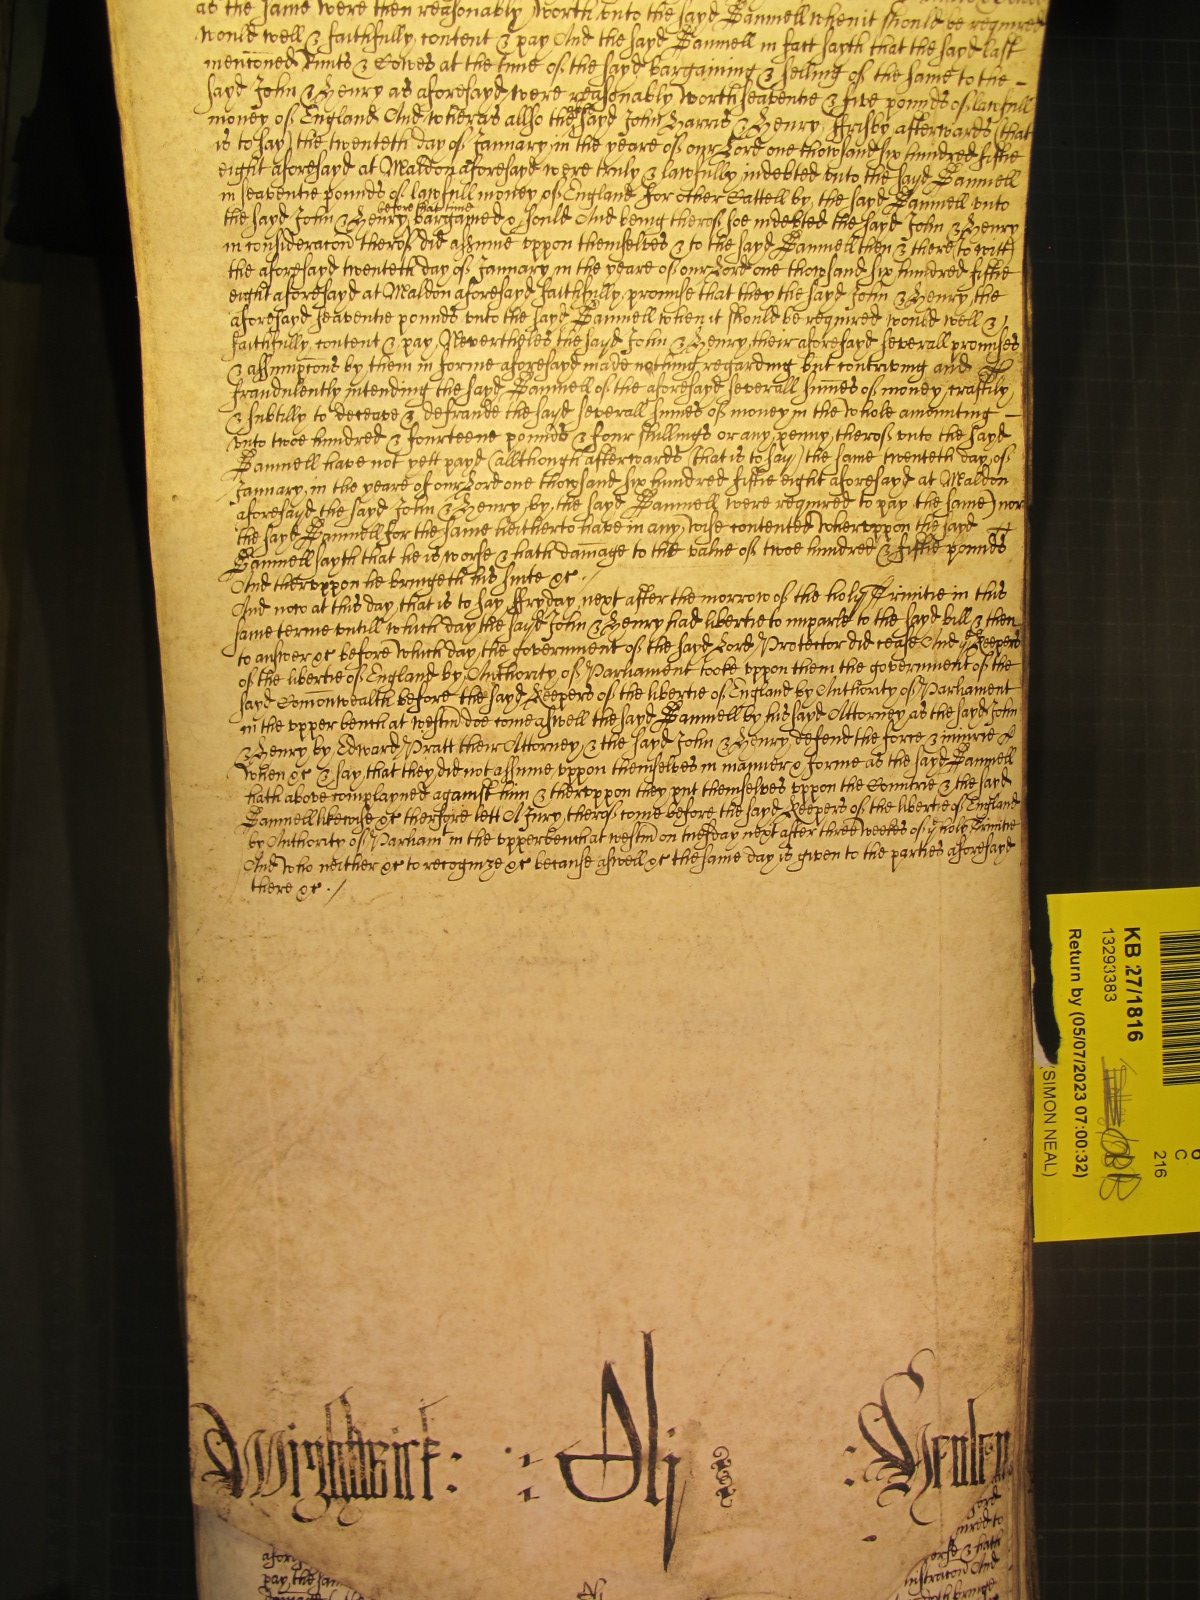 as the same were then reasonably worth vnto the sayd Bannell when it should be required
would well & faithfully content & pay And the sayd Bannell in fact sayth that the sayd last
mencioned Runts & Cowes at the time of the sayd bargaining & selling of the same to the
sayd John & Henry as aforesayd were reasonably worth seaventie & five pounds of lawfull
money of England And whereas allso the sayd John Harris & Henry Frisby afterwards (that
is to say) the twenteth day of January in the yeare of our Lord one thowsand six hundred fiftie
eight aforesayd at Maldon aforesayd were truly & lawfully indebted vnto the sayd Bannell
in seaventie pounds of lawfull money of England for other Cattell by the sayd Bannell vnto
the sayd John & Henry before that time bargained & sould And being therof soe indebted the sayd John & Henry
in consideracon therof did assume vppon themselves & to the sayd Bannell then & there (to witt)
the aforesayd twenteth day of January in the yeare of our Lord one thowsand six hundred fiftie
eight aforesayd at Maldon aforesayd faithfully promise that they the sayd John & Henry the
aforesayd seaventie pounds vnto the sayd Bannell when it should be required would well &
faithfully content & pay Neverthelés the sayd John & Henry their aforesayd severall promises
& assumptons by them in forme aforesayd made nothing regarding but contriving and
fraudulently intending the sayd Bannell of the aforesayd severall sumes of money craftily
& subtilly to deceave & defraude the sayd severall sumes of money in the whole amounting
vnto twoe hundred & fourteene pounds & four shillings or any penny therof vnto the sayd
Bannell have not yett payd (allthough afterwards (that is to say) the same twenteth day of
January in the yeare of our Lord one thowsand six hundred fiftie eight aforesayd at Maldon
aforesayd the sayd John & Henry by the sayd Bannell were required to pay the same) nor
the sayd Bannell for the same hitherto have in any wise contented Whervppon the sayd
Bannell sayth that he is worse & hath damage to the value of twoe hundred & fiftie pounds
And thervppon he bringeth his suite &c.
And now at this day that is to say ffryday next after the morrow of the holy Trinitie in this
same terme vntill which day the sayd John & Henry had libertie to imparle to the sayd bill & then
to answer &c before which day the government of the sayd Lord Protector did cease And ye Keepers
of the libertie of England by Authority of Parliament tooke vppon them the government of the
sayd Comonwealth before the sayd Keepers of the libertie of England by Authority of Parliament
in the vpper bench at westm doe come aswell the sayd Bannell by his sayd Attorney as the sayd John
& Henry by Edward Pratt their Attorney & the sayd John & Henry defend the force & iniurie
when &c & say that they did not assume vppon themselves in manner & forme as the sayd Bannell
hath above complayned against him & thervppon they put themselves vppon the Countrie & the sayd
Bannell likewise &c therfore lett A Jury therof come before the sayd Keepers of the libertie of England
by Authority of Parliam in the vpper bench at westm on tuesday next after three weekes of ye holy Trinitie
And who neither &c to recognize &c because aswell &c the same day is given to the parties aforesayd
there &c.
Wightwick
KB 27/1816
13293383
Return by (05/07/2023 07:00:32)
(SIMON NEAL)
C
216
pay the sam